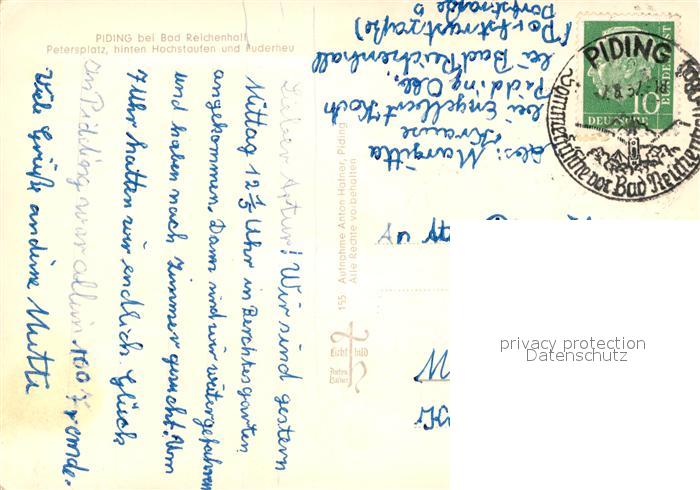 PIDING bei Bad Reichenhall
Petersplatz, hinten Hochstaufen und Fuderheu
Lieber Artur! Wir sind gestern
Mittag 12 ½ Uhr in Berchtesgarten
angekommen. Dann sind wir weitergefahren
und haben nach Zimmer gesucht. Um
7 Uhr hatten wir endlich Glück
In Piding war allein 1007 Fremde.
Viele Grüße an deine Mutti
Abs: Margitta
Krause
bei Engelbert Koch
Piding Obb.
bei Bad Reichenhall
Dorfstraße 5
155 Aufnahme Anton Hafner, Piding
Alle Rechte vorbehalten
Licht bild
Anton
Hafner
PIDING
Sommerfrische vor Bad Reichenhall
10
DEUTSCHE
BUNDESPOST
privacy protection
Datenschutz